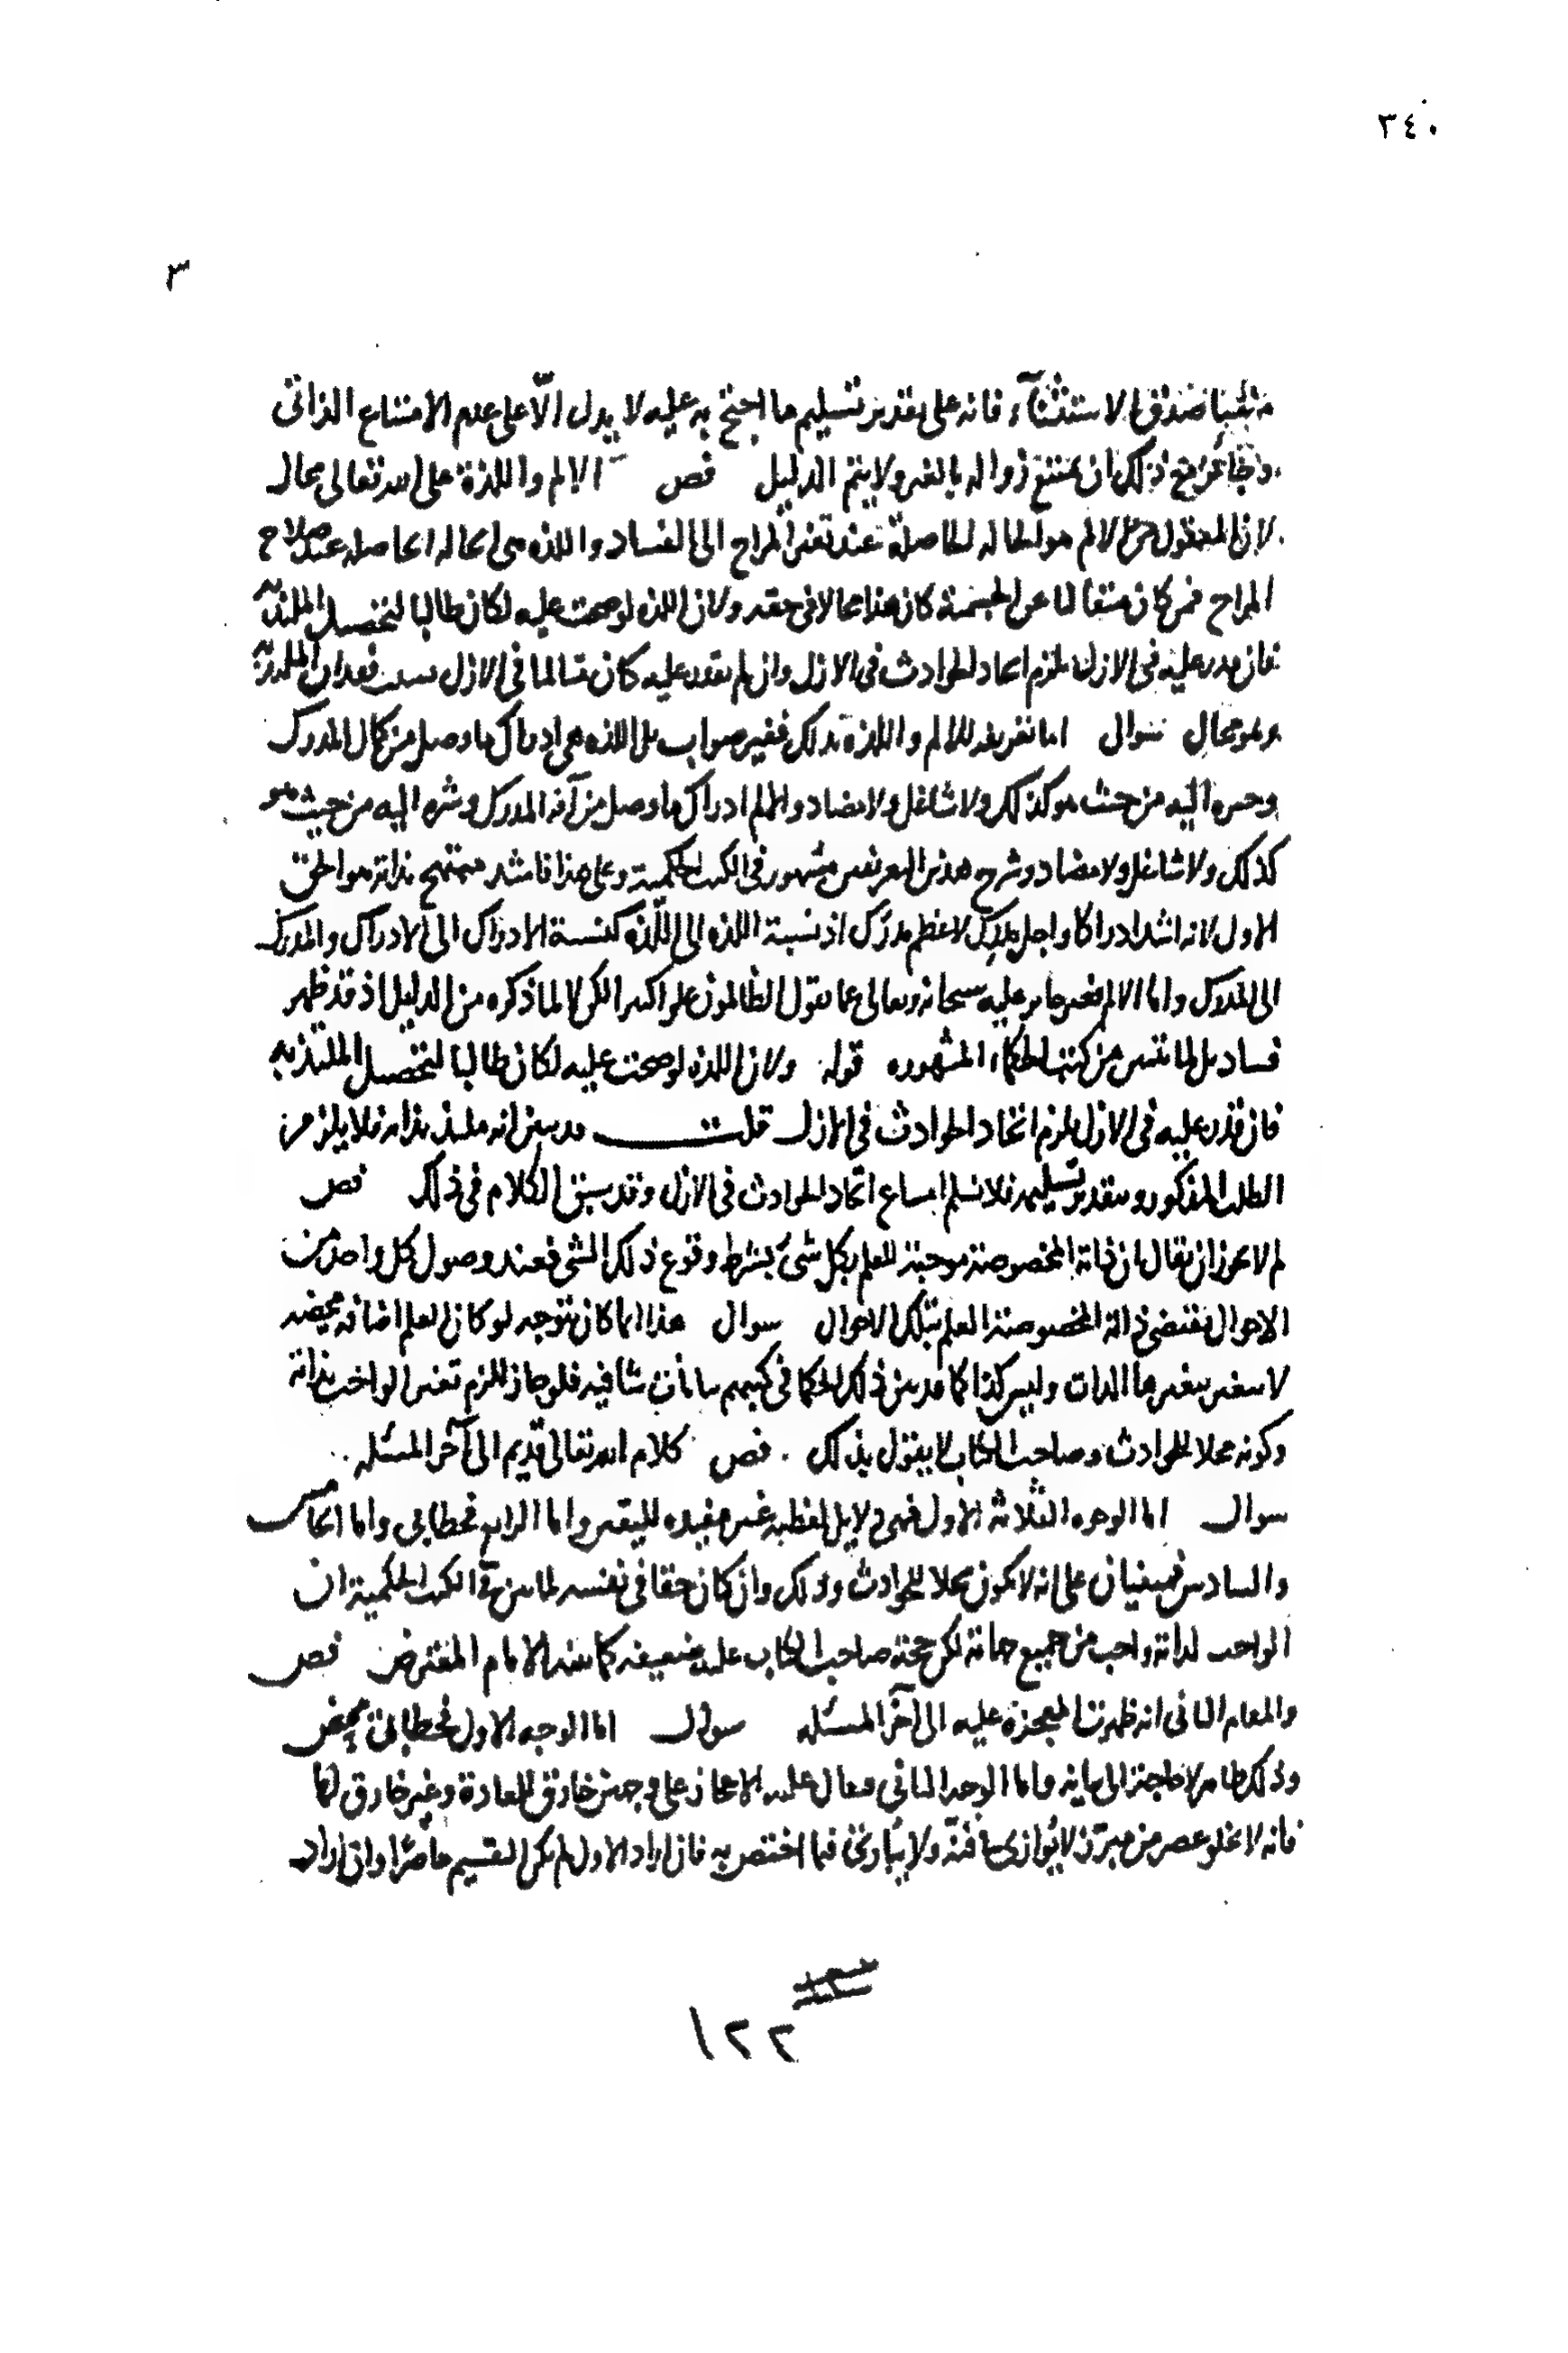 ٣٤٠
٣
صدق الاستثناء فانه على تقدير تسليم ما احتج به عليه لا يدل الّا على عدم الامتناع الذاتى
ذلك ان يمتنع زواله بالغير ولا يتم الدليل فص الالم واللذة على الله تعالى محال
لان المعقول من الالم هو الحاله الحاصلة عند تغير المزاج الى الفساد واللذه هى الحاله الحاصله عند صلاح
المزاج فمن كان متعاليا عن الجسمية كان هذا محالا فى حقه ولان اللذه لو صحت عليه لكان طالبا لتحصيل الملتذ به
فان قدر عليه فى الازل لزم اتحاد الحوادث فى الازل وان لم يقدر عليه كان متالما فى الازل بسبب فقدان الملتذ به
وهو محال سوال اما تعريفه للالم واللذة بذلك فغير صواب بل اللذه هى ادراك ما وصل من كمال المدرك
وخيره اليه من حيث هو كذلك ولا شاغل ولا مضاد والالم ادراك ما وصل من آفه المدرك وشره اليه من حيث هو
كذلك ولا شاغل ولا مضاد وشرح هذين التعريفين مشهور فى الكتب الحكمية وعلى هذا فاشد مبتهج بذاته هو الحق
الاول لانه اشد ادراكا واجل مدرِك لاعظم مدرَك اذ نسبة اللذه الى اللذه كنسبة الادراك الى الادراك والمدرك
الى المدرك واما الالم فغير جايز عليه سبحانه وتعالى عما يقول الظالمون علوا كبيرا لكن لا لما ذكره من الدليل اذ قد ظهر
فساده بل لما تبين من كتب الحكماء المشهوره قوله ولان اللذه لو صحت عليه لكان طالبا لتحصيل الملتذ به
فان قدر عليه فى الازل لزم اتحاد الحوادث فى الازل قلت قد بين انه ملتذ بذاته فلا يلزم من
الطلب المذكور وبتقدير تسليمه فلا نسلم امتناع اتحاد الحوادث فى الازل وقد سبق الكلام فى ذلك فص
لم لا يجوز ان يقال ان ذاته المخصوصة موجبة للعلم بكل شىء بشرط وقوع ذلك الشى فعند وصول كل واحد من
الاحوال تقتضى ذاته المخصوصة العلم بتلك الاحوال سوال هذا انما كان يتوجه لو كان العلم اضافه محضه
لا يتغير بتغيرها الذات وليس كذا كما قد بين ذلك الحكما فى كتبهم بيانات شافيه فلو جاز للزم تغير الواجب بذاته
وكونه محلا للحوادث وصاحب الكتاب لا يقول بذلك . فص كلام الله تعالى قديم الى آخر المسئله .
سوال اما الوجوه الثلاثه الاول فهى دلايل لفظيه غير مفيده لليقين واما الرابع فخطابى واما الخامس
والسادس فمبنيان على انه لا يكون محلا للحوادث وذلك وان كان حقا فى نفسه لما بين فى الكتب الحكمية ان
الواجب لذاته واجب من جميع جهاته لكن حجة صاحب الكتاب عليه ضعيفه كما بينه الامام المعترض فص
والمقام الثانى انه ظهرت المعجزة عليه الى آخر المسئله سوال اما الوجه الاول فخطابىّ محض
وذلك ظاهر لا حاجة الى بيانه واما الوجه الثانى فيقال عليه الاعجاز على وجهين خارق للعادة وغير خارق لها
فانه لا يخلو عصر من مبرّز لا يُوازى فى فنّه ولا يُبارى فيما اختص به فان اراد الاول لم يكن التقسيم حاصرًا وان اراد
١٢٢